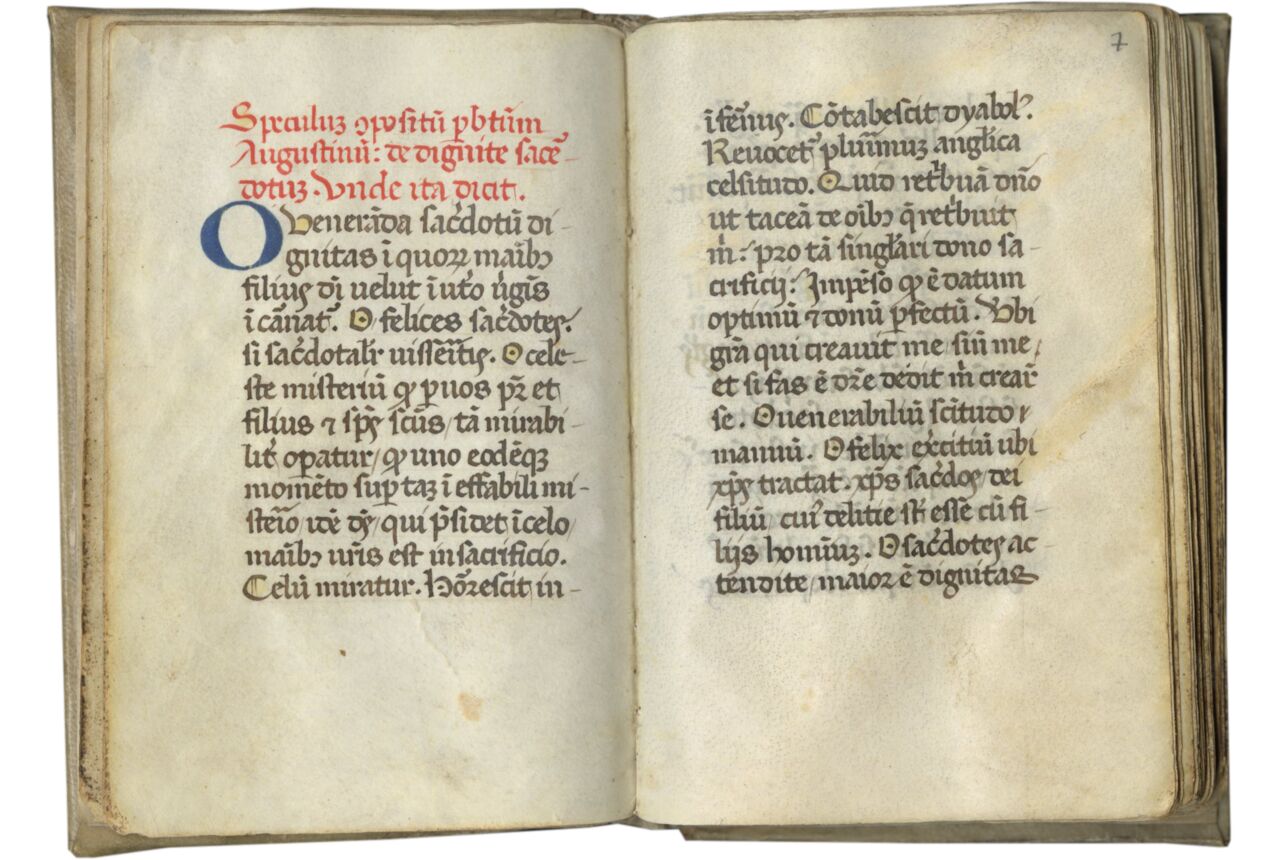 Speculuʒ ꝯpositū ꝑ btū̃m
Augustinū: de dignite sace᷒-
dotuʒ. Vnde ita dicit.
O Venerāda sac̓dotū di-
gnitas ī quoꝝ maībꝫ
filiꝰ dī uelut ī uto̓ ū̓gis
īcarnat᷒. O felices sac̓dotes.
si sac̓dotalr̓ uixe̓itis. O cele-
ste misteriū qꝫ ꝑ uos pr̄ et
filius ⁊ sp̄s sc̄us, tā mirabi-
lit̓ oꝑatur, qꝫ uno eodēqꝫ
momēto suꝑ taʒ ī effabili mi-
stēio, idē dꝰ, qui p̄sidet ī celo,
maībꝫ ur̄is est in sacrificio.
Celū miratur. Hōrescit in-
7
īfēnus. Cōtabescit dyabolꝰ.
Reuocet̓ plur̄imuʒ anglica
celsitudo. Quid ret̓buā dn̄o
ut taceā de oībꝫ q̄ ret̓buit
m̄: pro tā singl̓ari dono sa-
crificij: Impēso qꝫ ē datum
optimū ⁊ donū ꝑfectū. Vbi
gr̄a qui creauit me, sin̄ me,
et si fas ē dr̄e dedit m̄ crear̄
se. O uenerabiliū sc̄itudo,
manuū. O felix ex̓citiū ubi
xp̄s tractat. xp̄s sac̓dos, dei
filiū, cuiꝰ delitie st̄ esse cū fi-
liis hominuʒ. O sac̓dotes ac
tendite, maior ē dignitas